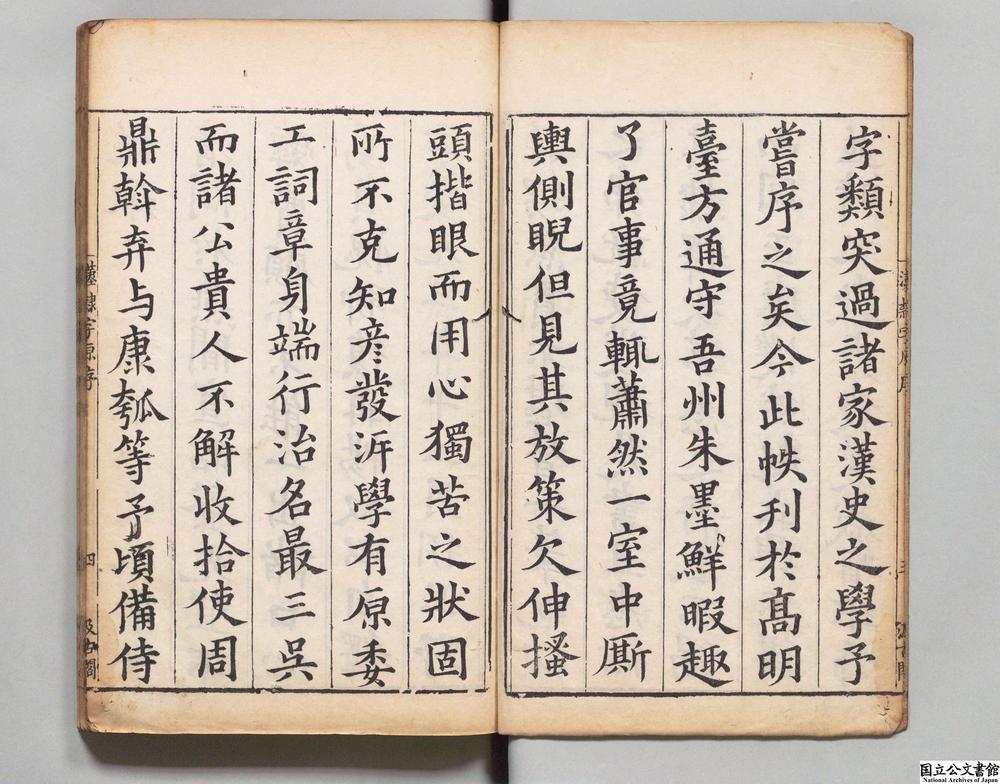 字類突過諸家漢史之學予
嘗序之矣今此帙刋於髙明
臺方通守吾州朱墨鮮暇趣
了官事竟輒蕭然一室中厮
輿側睨但見其放策欠伸搔
頭揩眼而用心獨苦之狀固
所不克知彦發泝學有原委
工詞章身端行治名最三吳
而諸公貴人不解收拾使周
鼎斡弃与康瓠等予頃備侍
漢隷字原序
四
汲古閣
国立公文書館
National Archives of Japan